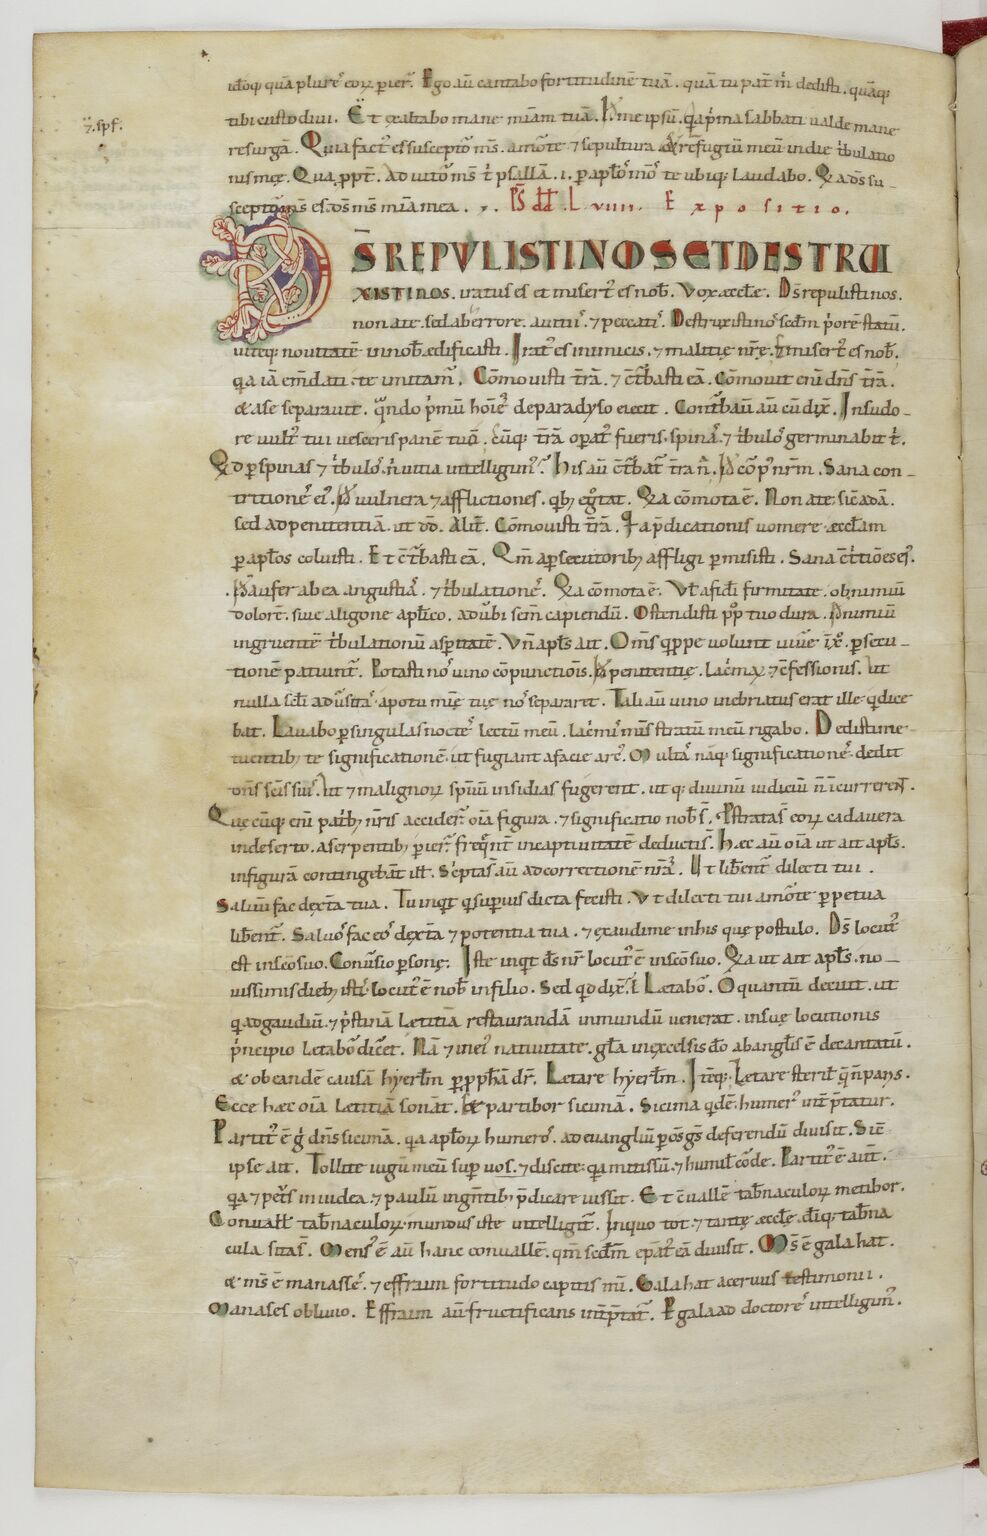 ideoq; quā plurēˢ eoꝝ perierˢ. Ego aū cantabo fortitudinē tuā. quā tu pat̄ m̄ dedisti. quāq;
tibi custodiui. Et exaltabo mane mīam tuā. In me ipsū. qa pͥma sabbati ualde mane
⁊. spſ.
resurgā. Quia factˢ es susceptoͬ mˢ. a morte ⁊ sepultura & refugiū meū in die tͥbulatio
nis meę. Qua ꝓpt̄. Adiutoͬ mˢ tͥ psallā. i. ꝑ aplōˢ meoˢ te ubiq; laudabo. Qa ds̄ su
sceptoͬ mˢ es. ds̄ mˢ mīa mea. Ps̄ dd̄. L viiii. Expositio.
DS̄ REPVLISTI NOS ET DESTRU
XISTI NOS. iratus es et misertˢ es nob̄. Vox æccłæ. Ds̄ repulisti nos.
non a te. sed ab errore. auertiˢ. ⁊ peccatiˢ. Destruxisti noˢ scdm̄ pͥorē statū.
uiteq; nouitatē in nob̄ ædificasti. Iratˢ es inimicis. ⁊ malitię nr̄ę. ⁊ misertˢ es nob̄.
qa iā em̄dati. te imitamˢ. Cōmouisti t̄rā. ⁊ c̄tͬbasti eā. Cōmouit eni dn̄s t̄rā.
& a se separauit. qn̄do pͥmū hoīeˢ de paradyso eiecit. Conturbauit aū cū dix̄. In sudo-
re uultˢ tui uesceris pane tuo. cūq; t̄rā opatˢ fueris. spinaˢ ⁊ tͥbuloˢ germinabit tͥ.
Qd ꝑ spinas ⁊ tͥbuloˢ. nͥ uitia intelligunt̄. His aū c̄tͬbatˢ t̄ra n̄. Sana con-
tritioneˢ eiˢ. uulnera ⁊ afflictiones. qbꝫ egrotat. Qa cōmota ē. Non a te. sic adā.
sed ad penitentiā. ut dd̄. Alit̄. Cōmouisti t̄rā. Ia p̄dicationis uomere æccłam
ꝑ apłos coluisti. Et c̄tͬbasti eā. Qm̄ a ꝑsecutoribꝫ affligi ꝑmisisti. Sana c̄tͥtiōes eiˢ.
aufer ab ea angustiaˢ. ⁊ tͥbulationeˢ. Qa cōmota ē. Vt̄ a fidei firmitate. ob nimiū
dolorē. siue a ligone apłico. ad uerbi sem̄ capiendū. Ostendisti pp̄o tuo dura. nimiū
ingruentē tͥbulationū aspitatē. Vn̄ apłs ait. Om̄s qppe uolunt uiuere ī x̄. ꝑsecu-
tionē patiunt̄. Potasti noˢ uino cōpunctiōis. penitentię. lacͥmaꝝ ⁊ c̄fessionis. Ut
nulla scli aduˢitaˢ. a potu mīę tuę noˢ separaret. Tali aū uino inebriatus erat ille. q dice
bat. Lauabo ꝑ singulas nocteˢ lectū meū. lacͥmiˢ meis stratū meū rigabo. Dedisti me-
tuentibꝫ te significationē. ut fugiant a facie arcˢ. Multaˢ nāq; significationeˢ dedit
om̄s sc̄is suiˢ. ut ⁊ malignoꝝ spirituū insidias fugerent. ut q; diuinū iudiciū n̄ incurrerent̄.
Quęcūq; eni patͥbꝫ nr̄is accideˢ. oīa figura. ⁊ significatio nob̄ s̄. Pstrataˢ eoꝝ cadauera
in deserto. a serpentibꝫ perierˢ. freqnt̄ in captiuitatē deductiˢ. Hæc aū oīa ut ait apłs.
in figurā contingebāt illˢ. Sc̄ptaˢ aū ad correctionē nr̄ā. Ut liberent̄ dilecti tui.
Saluū fac dext̄a tua. Tu inqt q superius dicta fecisti. Vt dilecti tui a morte ꝑpetua
liberent̄. Saluoˢ fac eoˢ dext̄a ⁊ potentia tua. ⁊ exaudi me in his quę postulo. Ds̄ locutˢ
est in sc̄o suo. Conuˢio ꝑsonę. Iste inqt ds̄ nr̄ locutˢ ē in sc̄o suo. Qa ut ait apłs. no-
uissimis diebꝫ istiˢ locutˢ ē nob̄ in filio. Sed qd dix̄. Lætaboͬ. O quantū decuit. ut
q ad gaudiū. ⁊ pͥstinā lætitiā restaurandā in mundū uenerat. in suę locutionis
pͥncipio letaboͬ diceret. Nā ⁊ in eiˢ natiuitate. gła in excelsis dō ab angłis ē decantatū.
& ob eandē causā hyerłm ꝑ ꝓph̄ā dr̄. Letare hyerłm. Itēq;. Letare sterilˢ q n̄ paris.
Ecce hæc oīa lætitiā sonāt. & partibor sicimā. Sicima qdē. humerˢ int̄p̄tatur.
Partitˢ ē g̊ dn̄s sicimā. qa apłoꝝ humeroˢ. ad euangliū ꝑ om̄s gēs deferendū diuisit. Siē
ipse ait. Tollite iugū meū super uos. ⁊ discite. qa mitis sū. ⁊ humilˢ corde. Partitˢ ē aūt.
qa ⁊ petrˢ in iudea. ⁊ paulū in gn̄tibꝫ p̄dicare iussit. Et c̄uallē tab̄naculoꝝ metibor.
Conuallˢ tab̄naculoꝝ. mundus iste intelligit̄. In quo tot ⁊ tantę æccłę. dīq; tab̄na
cula sitaˢ. Mensˢ ē aū hanc conuallē. qm̄ scdm̄ epatˢ eā diuisit. Mˢ ē galahat.
& mˢ ē manasseˢ. ⁊ effraim fortitudo capitis mͥ. Galahat aceruus testimonii.
Manases obliuio. Effraim aū fructificans int̄p̄tatˢ. P galaad doctoreˢ intelligimˢ.